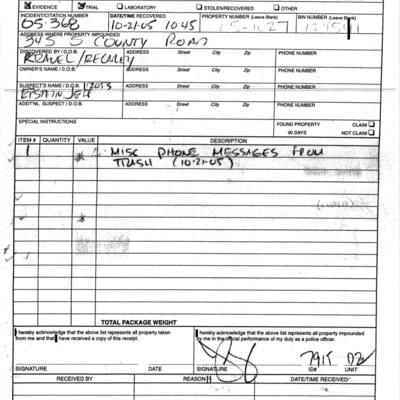 ☑ EVIDENCE ☑ TRIAL ☐ LABORATORY ☐ STOLEN/RECOVERED ☐ OTHER
INCIDENT/CITATION NUMBER DATE/TIME RECOVERED PROPERTY NUMBER (Leave Blank) BIN NUMBER (Leave Blank)
05-368 10-21-05 10:45
ADDRESS WHERE PROPERTY IMPOUNDED
345 S COUNTY ROAD
DISCOVERED BY / D.O.B. ADDRESS Street City Zip PHONE NUMBER
OWNER'S NAME / D.O.B. ADDRESS Street City Zip PHONE NUMBER
SUSPECT'S NAME / D.O.B. ADDRESS Street City Zip PHONE NUMBER
ADDTNL. SUSPECT / D.O.B. ADDRESS Street City Zip PHONE NUMBER
SPECIAL INSTRUCTIONS FOUND PROPERTY CLAIM ☐
90 DAYS NOT CLAIM ☐
ITEM # QUANTITY VALUE DESCRIPTION
1 MISC PHONE MESSAGES FROM
TRASH (10-21-05)
TOTAL PACKAGE WEIGHT
I hereby acknowledge that the above list represents all property taken
from me and that I have received a copy of this receipt.
I hereby acknowledge that the above list represents all property impounded
by me in the official performance of my duty as a police officer.
SIGNATURE DATE SIGNATURE ID# UNIT
RECEIVED BY REASON DATE/TIME RECEIVED